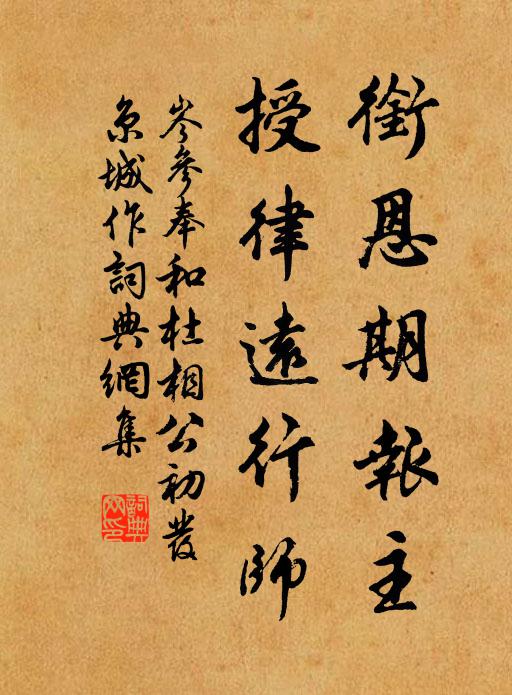 銜恩期報主
授律遠行師
岑參奉和杜相公初發
京城作詞典網集
詞典網印